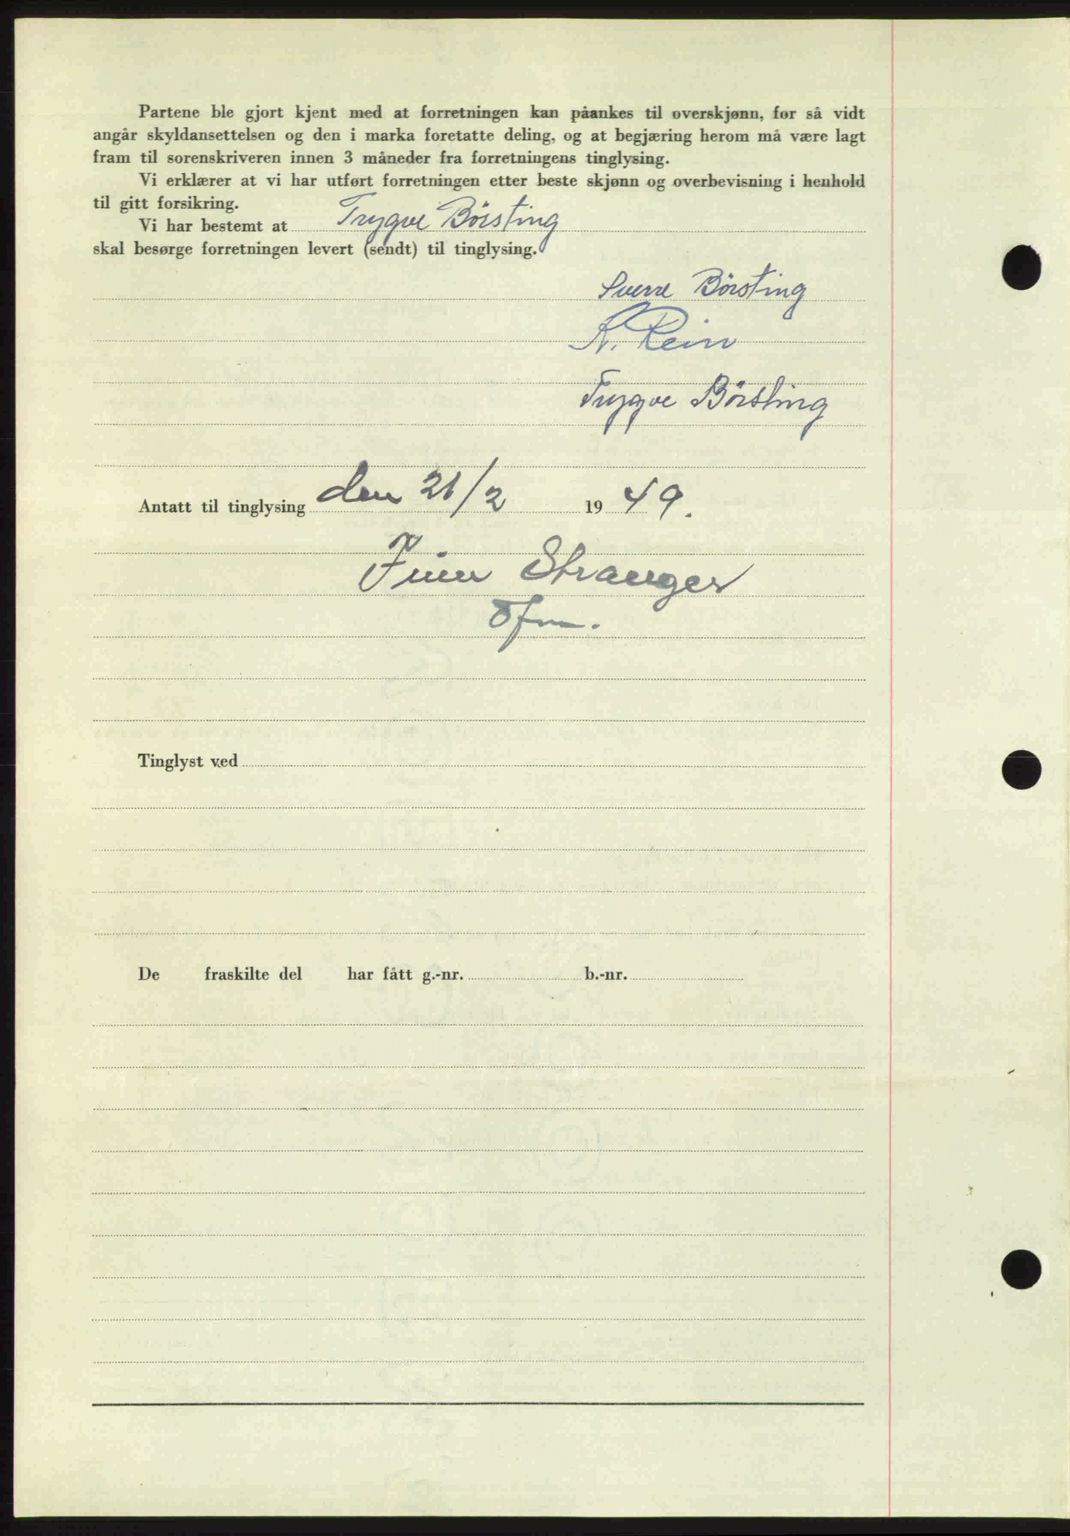 Partene ble gjort kjent med at forretningen kan påankes til overskjønn, for så vidt
angår skyldansettelsen og den i marka foretatte deling, og at begjæring herom må være lagt
fram til sorenskriveren innen 3 måneder fra forretningens tinglysing.
Vi erklærer at vi har utført forretningen etter beste skjønn og overbevisning i henhold
til gitt forsikring.
Vi har bestemt at Trygve Börsting
skal besørge forretningen levert (sendt) til tinglysing.
Sverre Börsting
K. Rein
Trygve Börsting
Antatt til tinglysing den 21/2 1949.
Finn Stranger
Tinglyst ved
De fraskilte del har fått g.-nr. b.-nr.